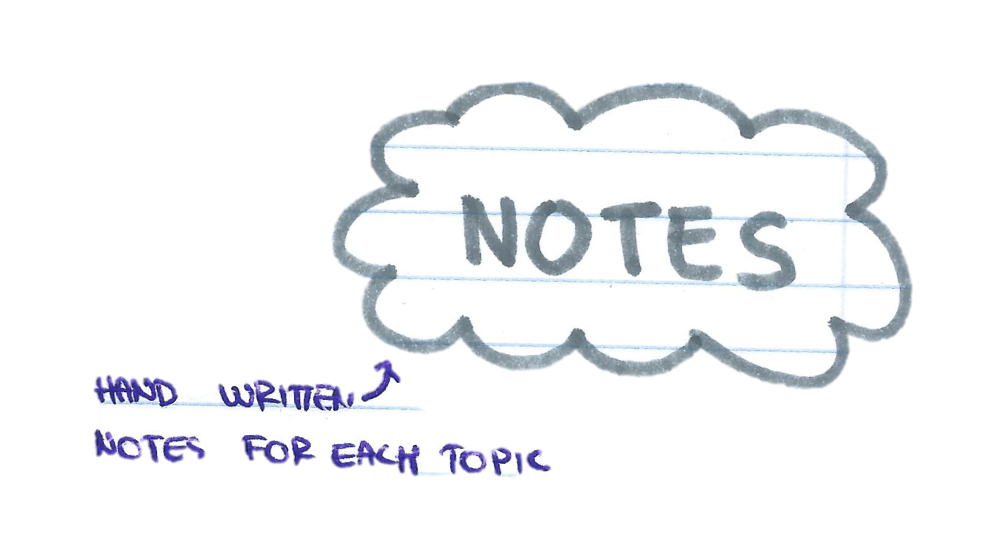 NOTES
HAND WRITTEN
NOTES FOR EACH TOPIC